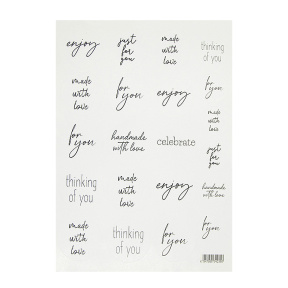 enjoy
just
for
you
made
with
love
thinking
of you
made
with
love
for
you
enjoy
for
you
made
with
love
for
you
handmade
with love
celebrate
just
for
you
thinking
of you
made
with
love
enjoy
handmade
with love
made
with
love
thinking
of you
for
you
for
you